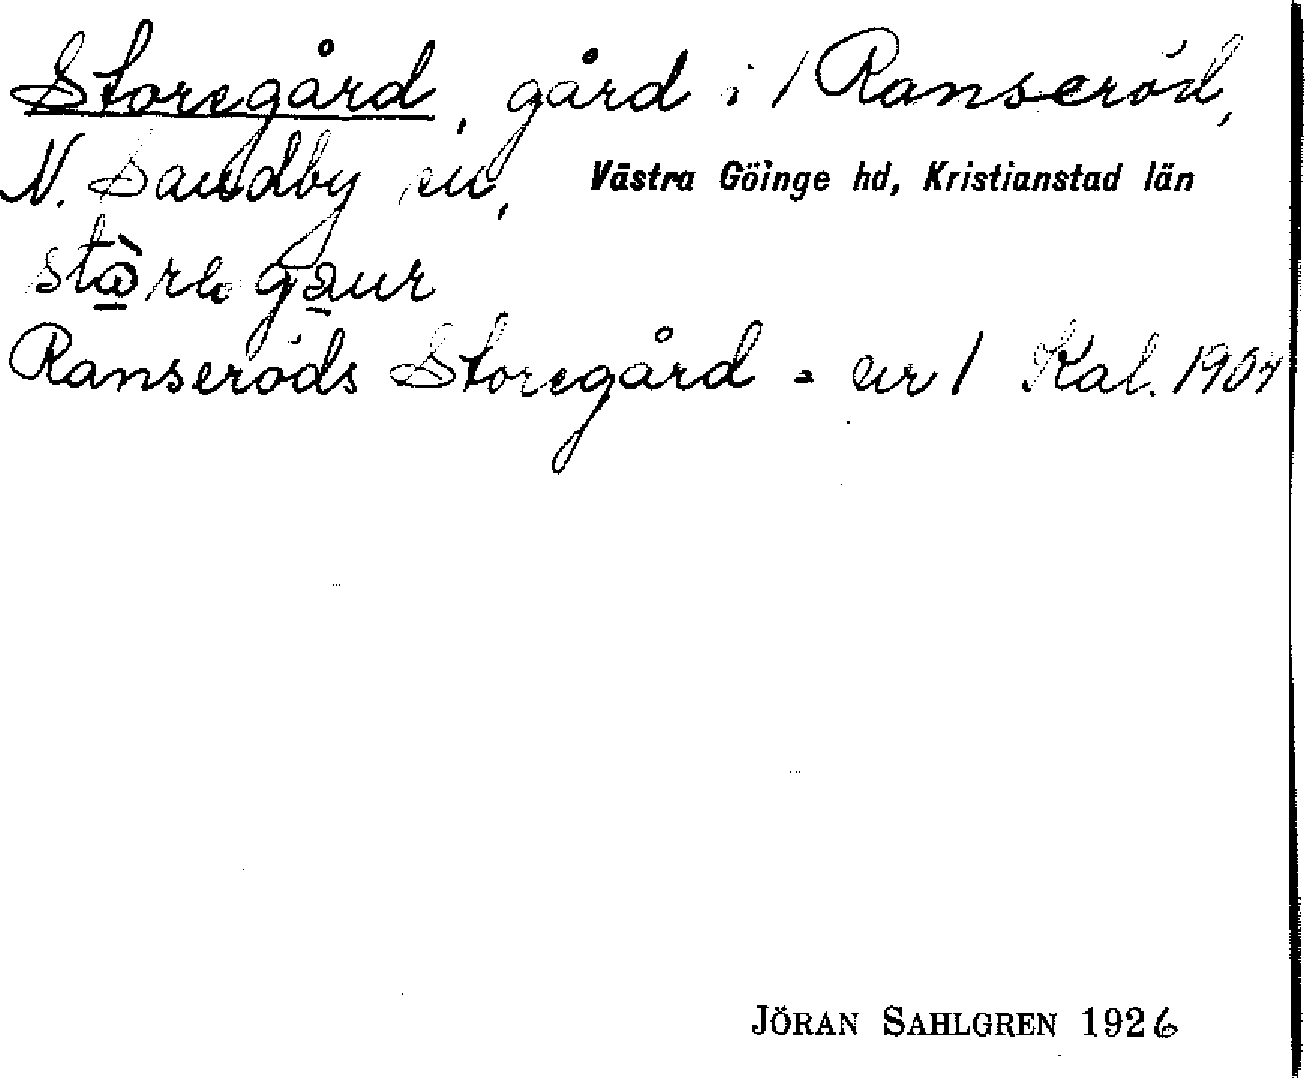 Storegård, gård i 1 Ranseröd,
N. Sandby sn, Västra Göinge hd, Kristianstad län
Ranseröds Storegård = nr 1 Kal. 1904
JÖRAN SAHLGREN 1926